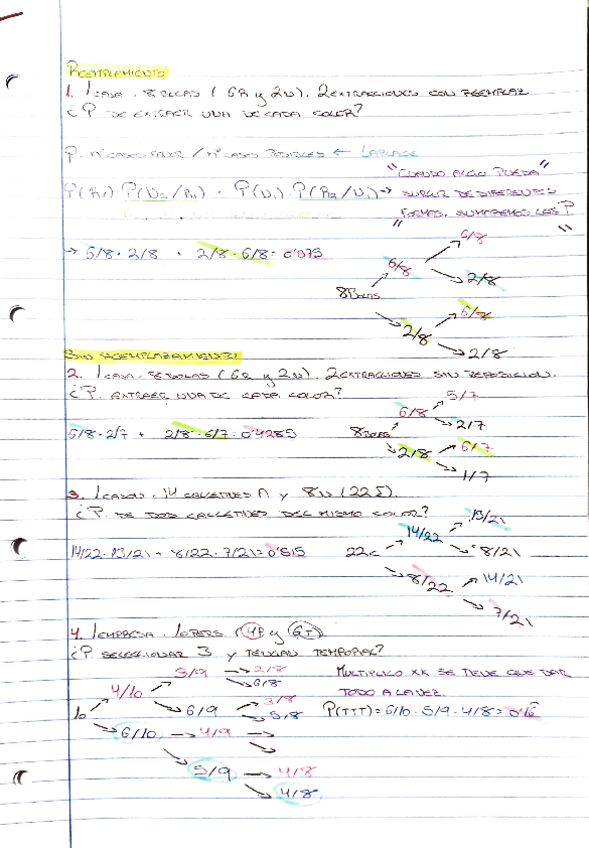 Reemplazamiento
1. 1 caja. 8 bolas (6R y 2V). 2 extracciones con reemplaz
¿P de extraer una de cada color?
P. nº casos favor / nº casos posibles ← Laplace
"Cuando algo pueda"
P(R1) P(V2/R1) + P(V1) · P(R2/V1) → surgir de diferentes
formas, sumaremos las P"
6/8
→ 6/8 · 2/8 + 2/8 · 6/8 = 0'375
6/8
2/8
8 Bolas
6/8
2/8
2/8
Sin reemplazamiento
2. 1 caja. 8 bolas (6R y 2V). 2 extracciones sin reposición.
¿P. extraer una de cada color?
5/7
6/8
2/7
6/8 · 2/7 + 2/8 · 6/7 = 0'4285
8 Bolas
6/7
2/8
1/7
3. 1 cajón. 14 calcetines N y 8 (22).
¿P. de dos calcetines del mismo color?
13/21
14/22
14/22 · 13/21 + 8/22 · 7/21 = 0'515
22c
8/21
8/22
14/21
7/21
4. 1 empresa. 10 pers (4P y 6T)
¿P seleccionar 3 y tengan temporal?
3/9 → 2/8
6/8
Multiplico xk se tiene que dar
todo a la vez.
4/10
3/8
10
6/9
5/8
P(TTT) = 6/10 · 5/9 · 4/8 = 0'16
6/10 → 4/9
5/9 → 4/8
4/8